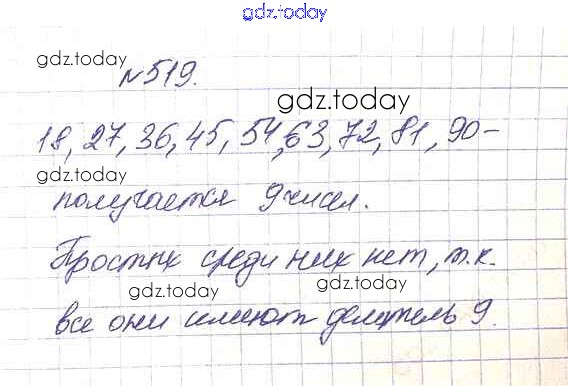 gdz.today
gdz.today
№519.
gdz.today
18, 27, 36, 45, 54, 63, 72, 81, 90 –
gdz.today
получается 9 чисел.
Простых среди них нет, т.к.
gdz.today
все они имеют делитель 9.
gdz.today